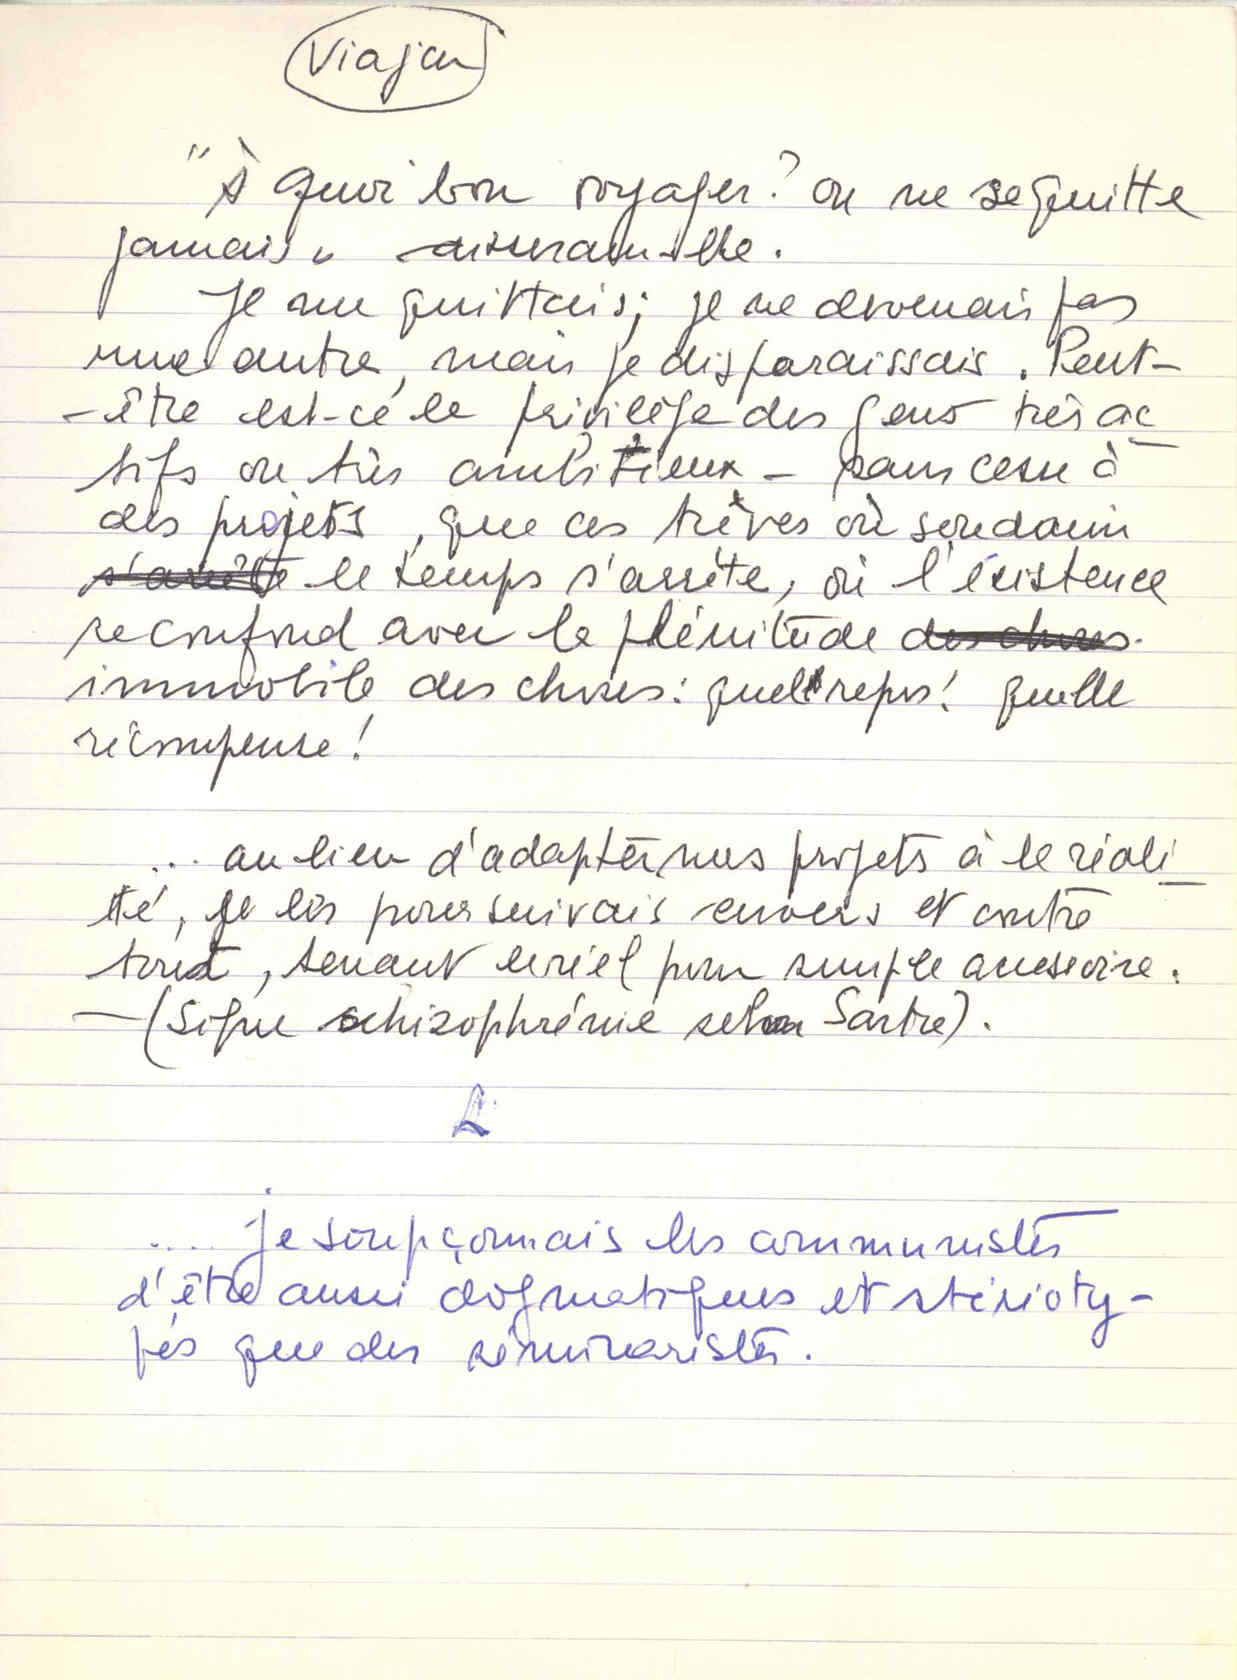 Viajar
"À quoi bon voyager? on ne se quitte
jamais" disait-elle.
Je me quittais; je ne devenais pas
une autre, mais je disparaissais. Peut-
-être est-ce le privilège des gens très ac
tifs ou très ambitieux - sans cesse à
des projets, que ces trêves où soudain
s'arrête le temps s'arrête, où l'existence
se confond avec la plénitude des choses
immobile des choses: quel repos! quelle
récompense!
... au lieu d'adapter mes projets à la réali
té, je les poursuivais envers et contre
tout, tenant le réel pour simple accessoire.
-(Signe schizophrénie selon Sartre).
.... je soupçonnais les communistes
d'être aussi dogmatiques et stéréoty-
pés que des séminaristes.